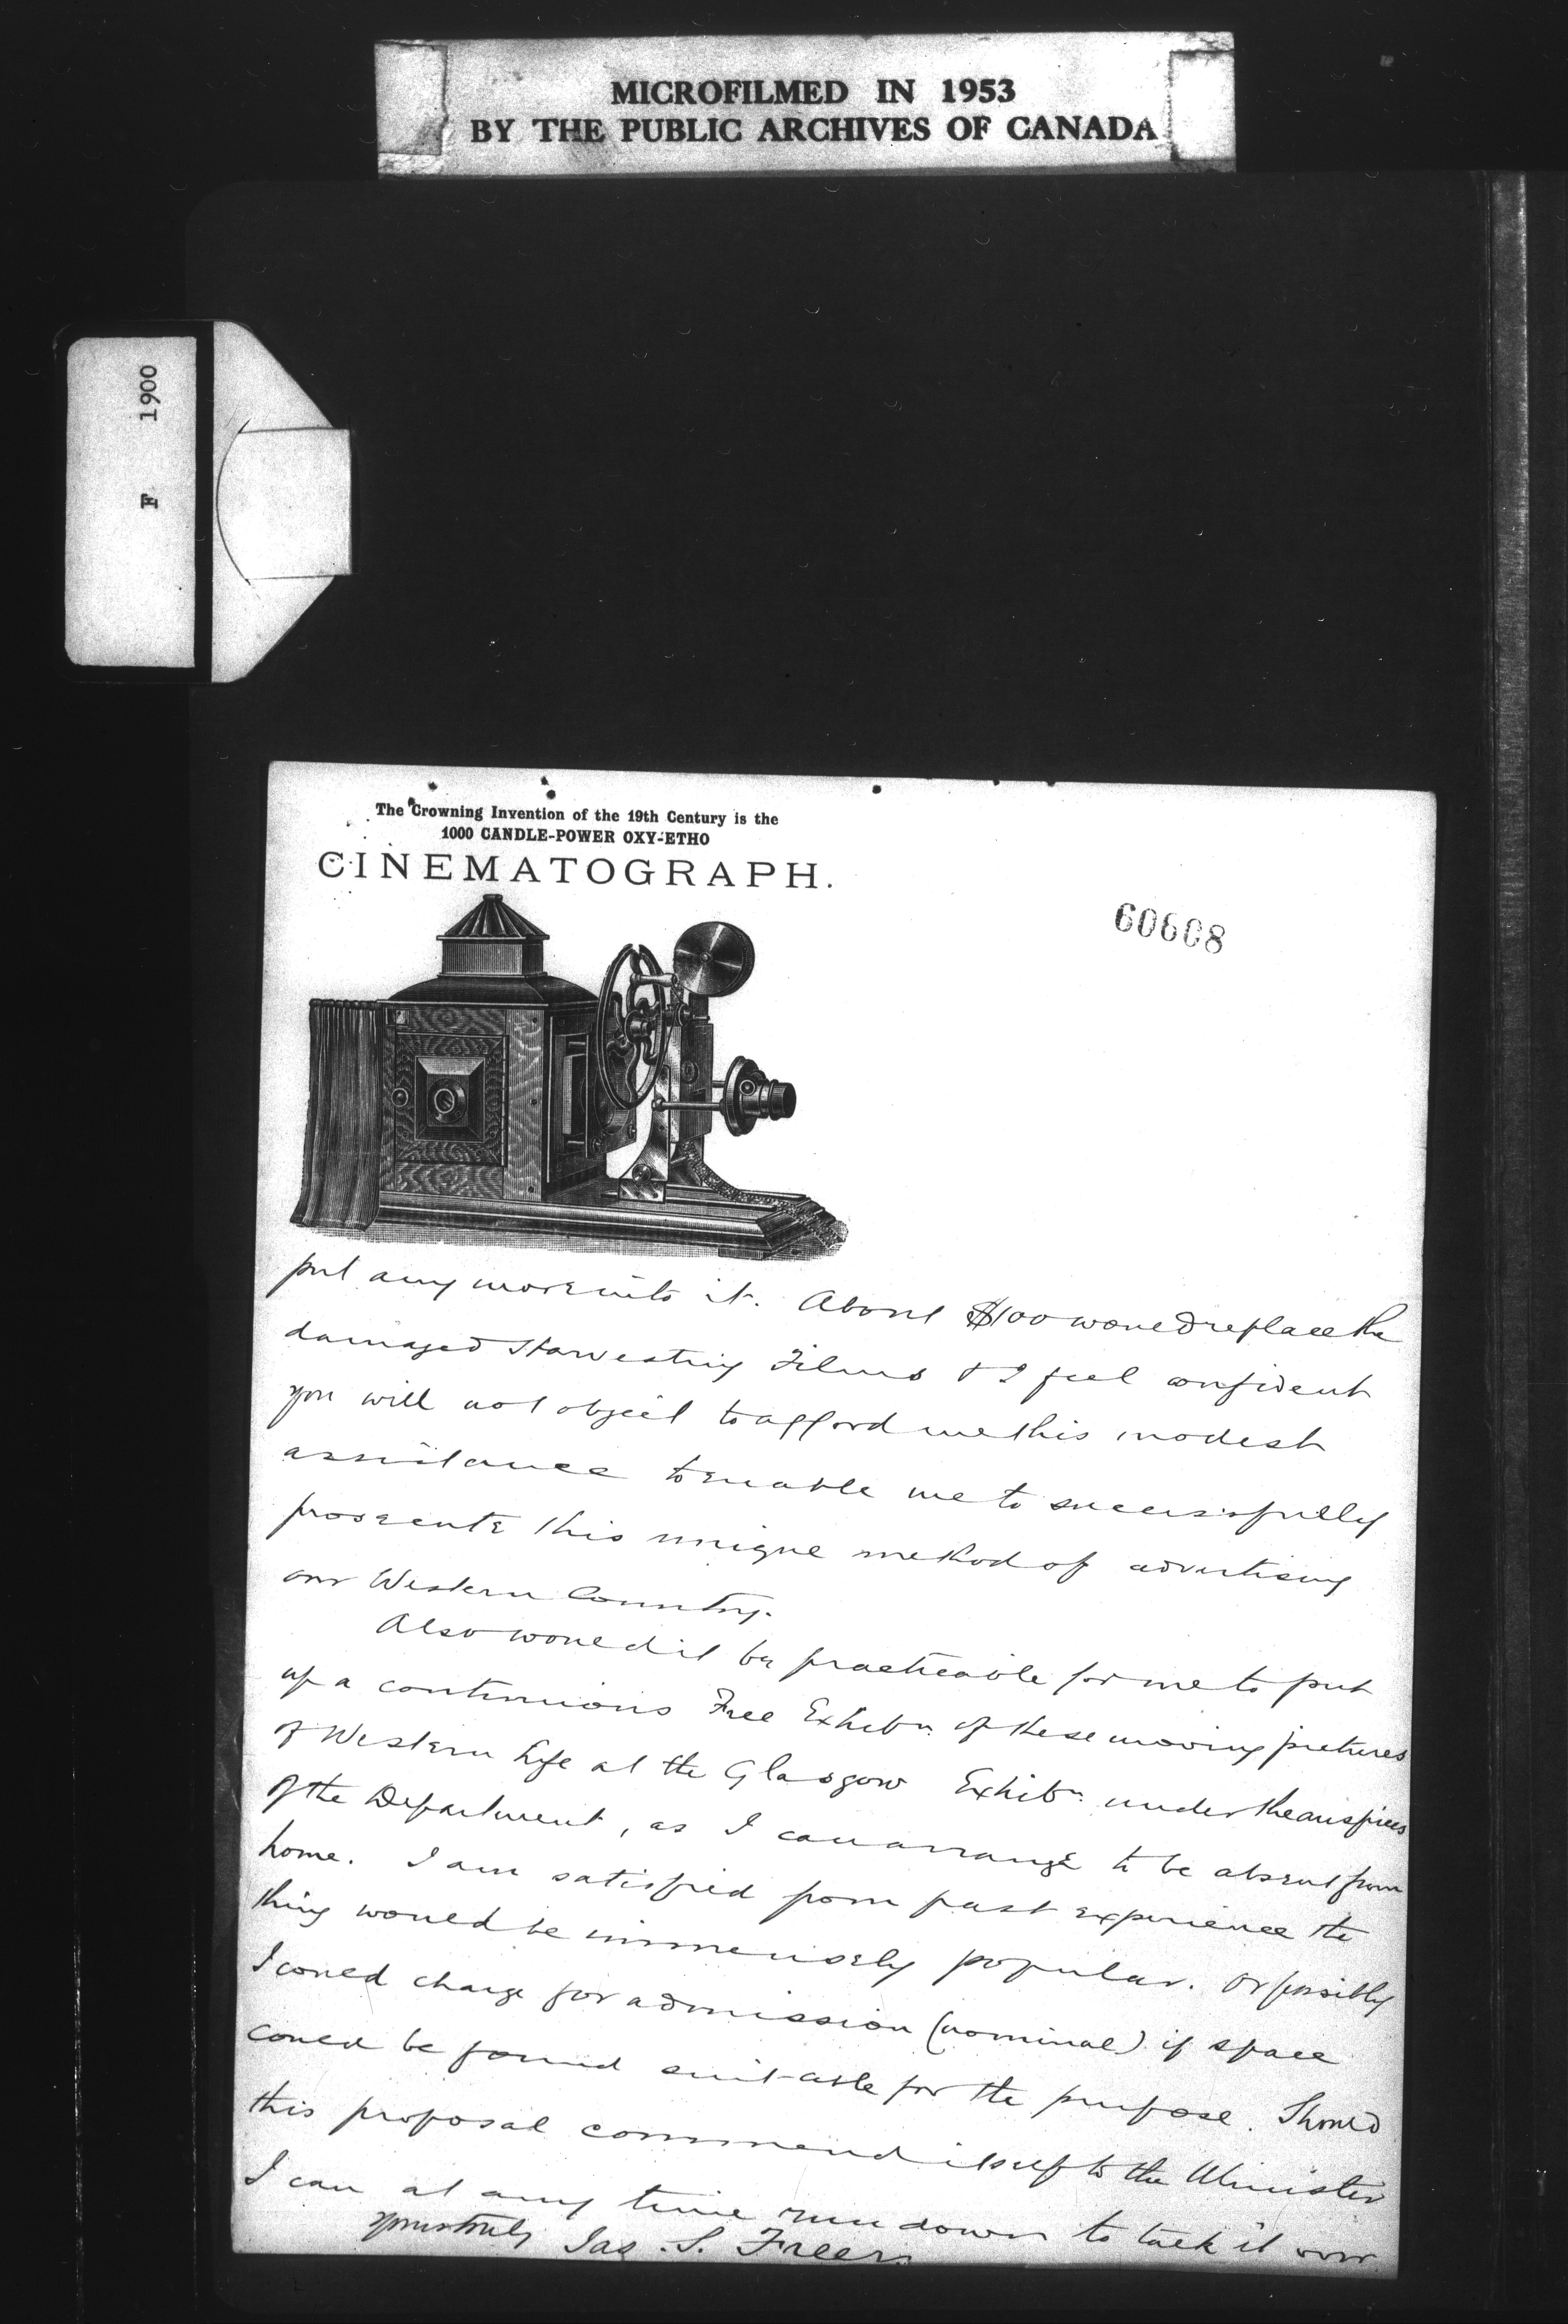 MICROFILMED IN 1953
BY THE PUBLIC ARCHIVES OF CANADA
F 1900
The Crowning Invention of the 19th Century is the
1000 CANDLE-POWER OXY-ETHO
CINEMATOGRAPH.
60608
put any more into it. About $100 would replace the
damaged Harvesting Films & I feel confident
you will not object to afford me this modest
assistance to enable me to successfully
prosecute this unique method of advertising
our Western Country.
Also would it be practicable for me to put
up a continuous Free Exhibn. of these moving pictures
of Western life at the Glasgow Exhibn. under the auspices
of the Department, as I can arrange to be absent from
home. I am satisfied from past experience the
thing would be immensely popular. Or possibly
I could charge for admission (nominal) if space
could be found suitable for the purpose. Should
this proposal commend itself to the Minister
I can at any time run down to talk it over
yours truly Jas. S. Freer.